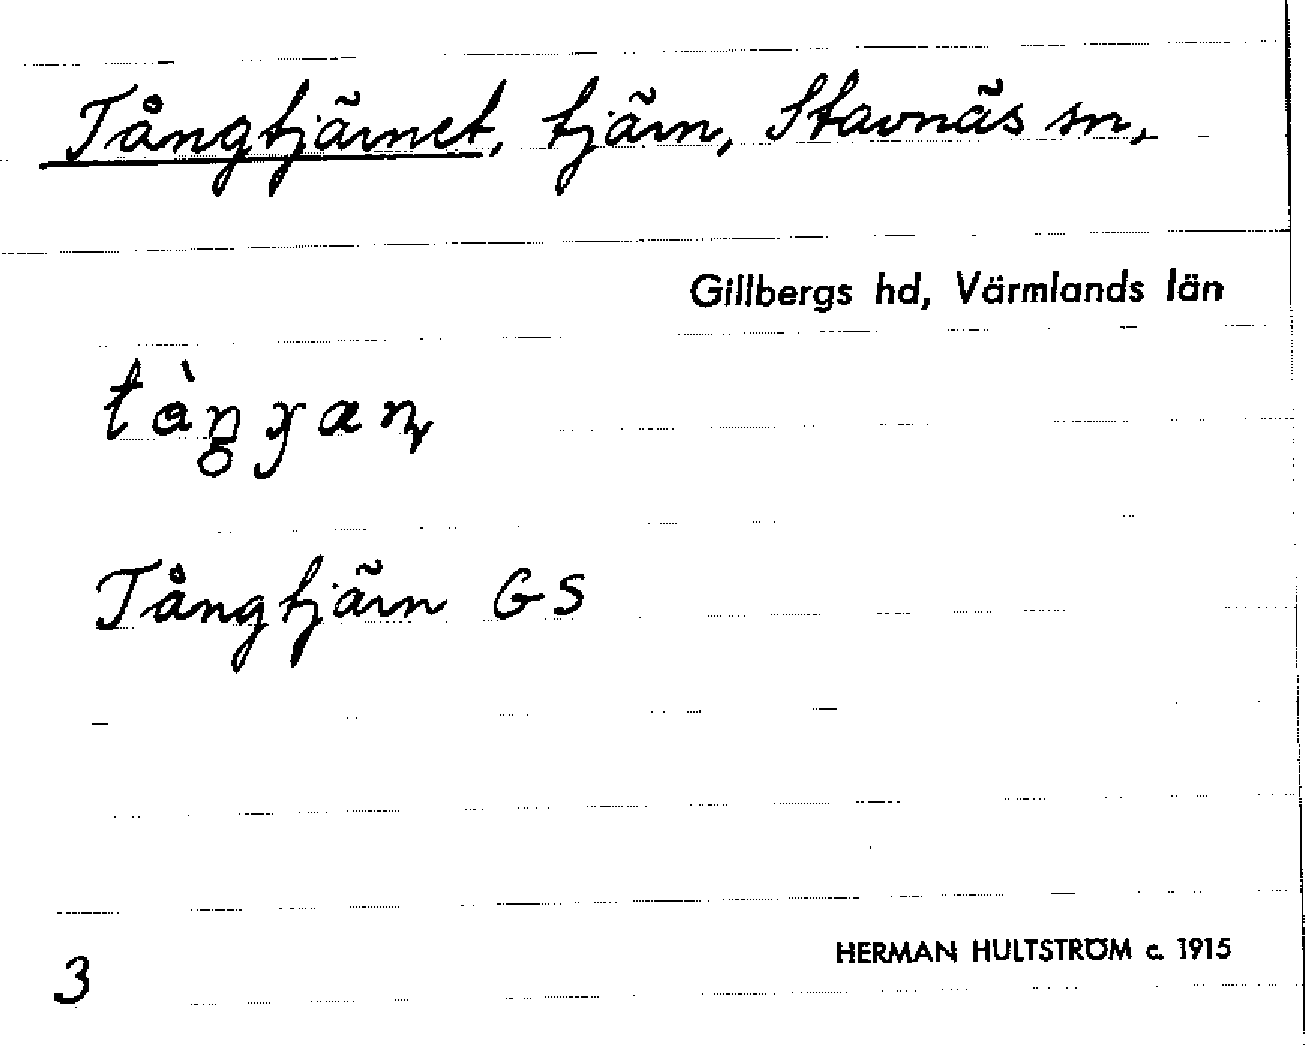 Tångtjärnet, tjärn, Stavnäs sn,
Gillbergs hd, Värmlands län
Tångtjärn GS
HERMAN HULTSTRÖM c. 1915
3